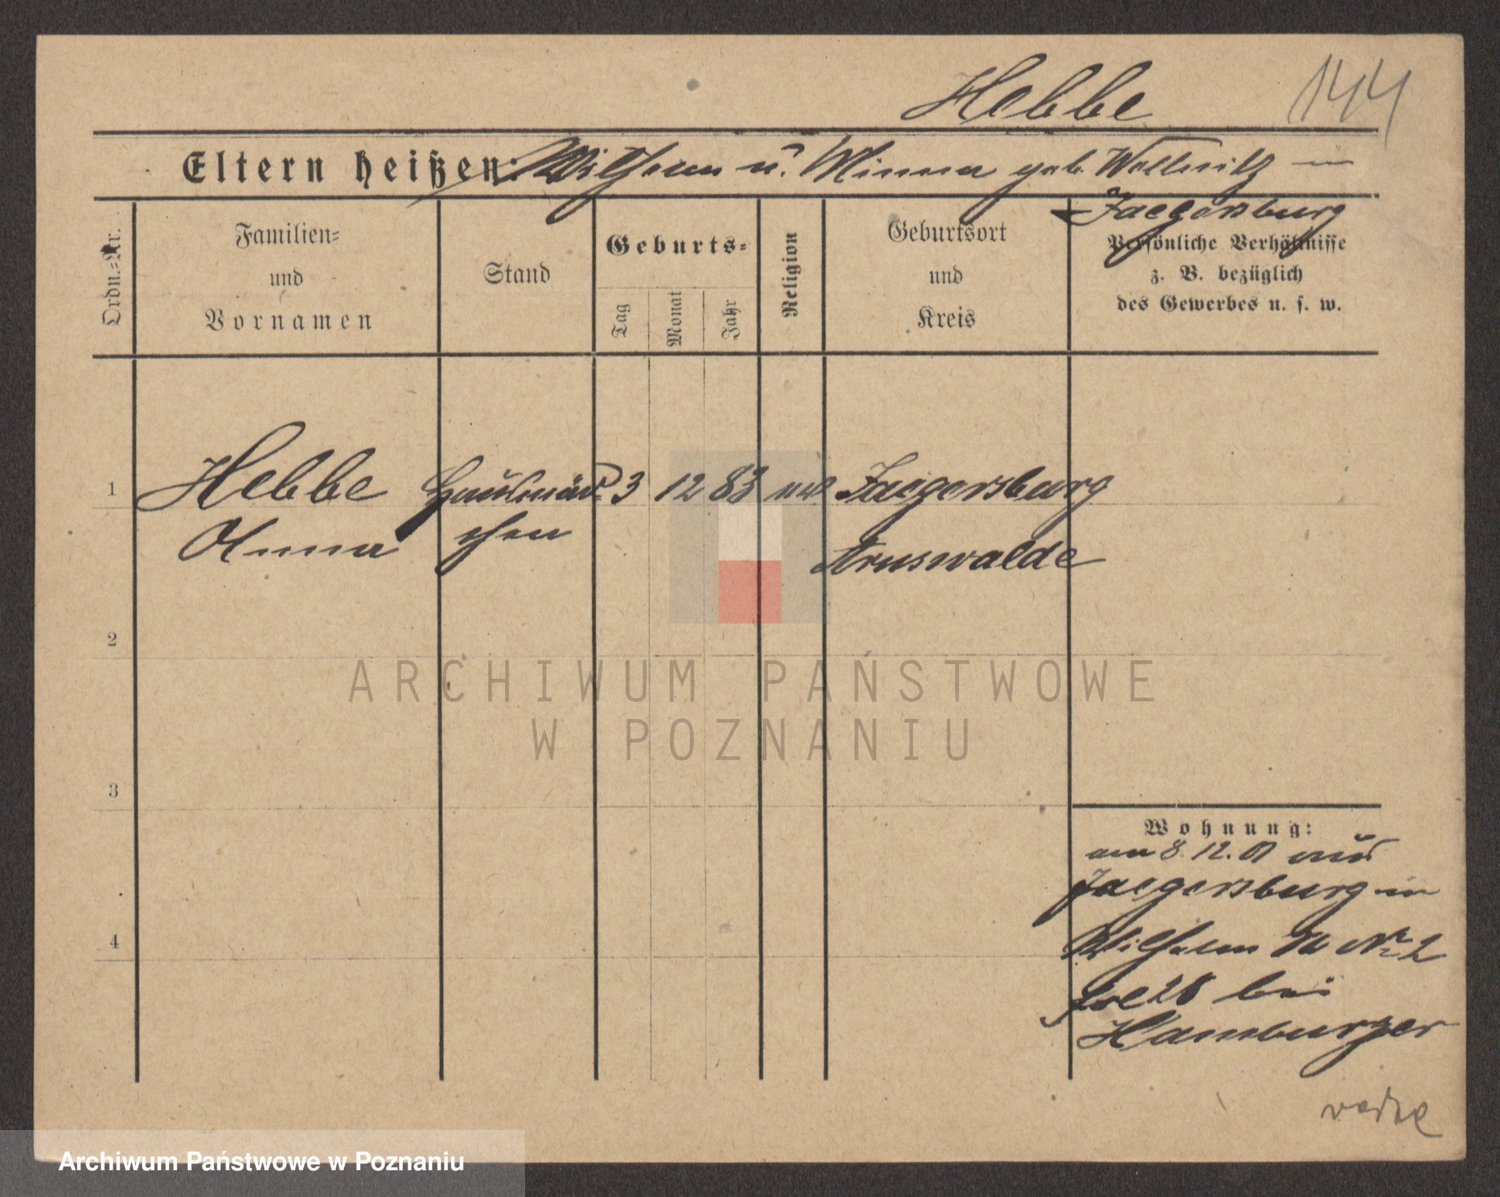 Hebbe 144
Eltern heißen: Wilhelm u. Minna geb. Wollnitz in
Jaegersburg
Ordn.=Nr.
Familien=
und
Vornamen
Stand
Geburts=
Tag
Monat
Jahr
Religion
Geburtsort
und
Kreis
Persönliche Verhältnisse
z. B. bezüglich
des Gewerbes u. s. w.
1 Hebbe Hausmäd= 3 12 83 Jaegersburg
Anna chen Arnswalde
2
3
4
Wohnung:
am 8.12.01 aus
Jaegersburg in
Wilhelm Nr. 2
bei
Hamburger
ARCHIWUM PAŃSTWOWE
W POZNANIU
Archiwum Państwowe w Poznaniu